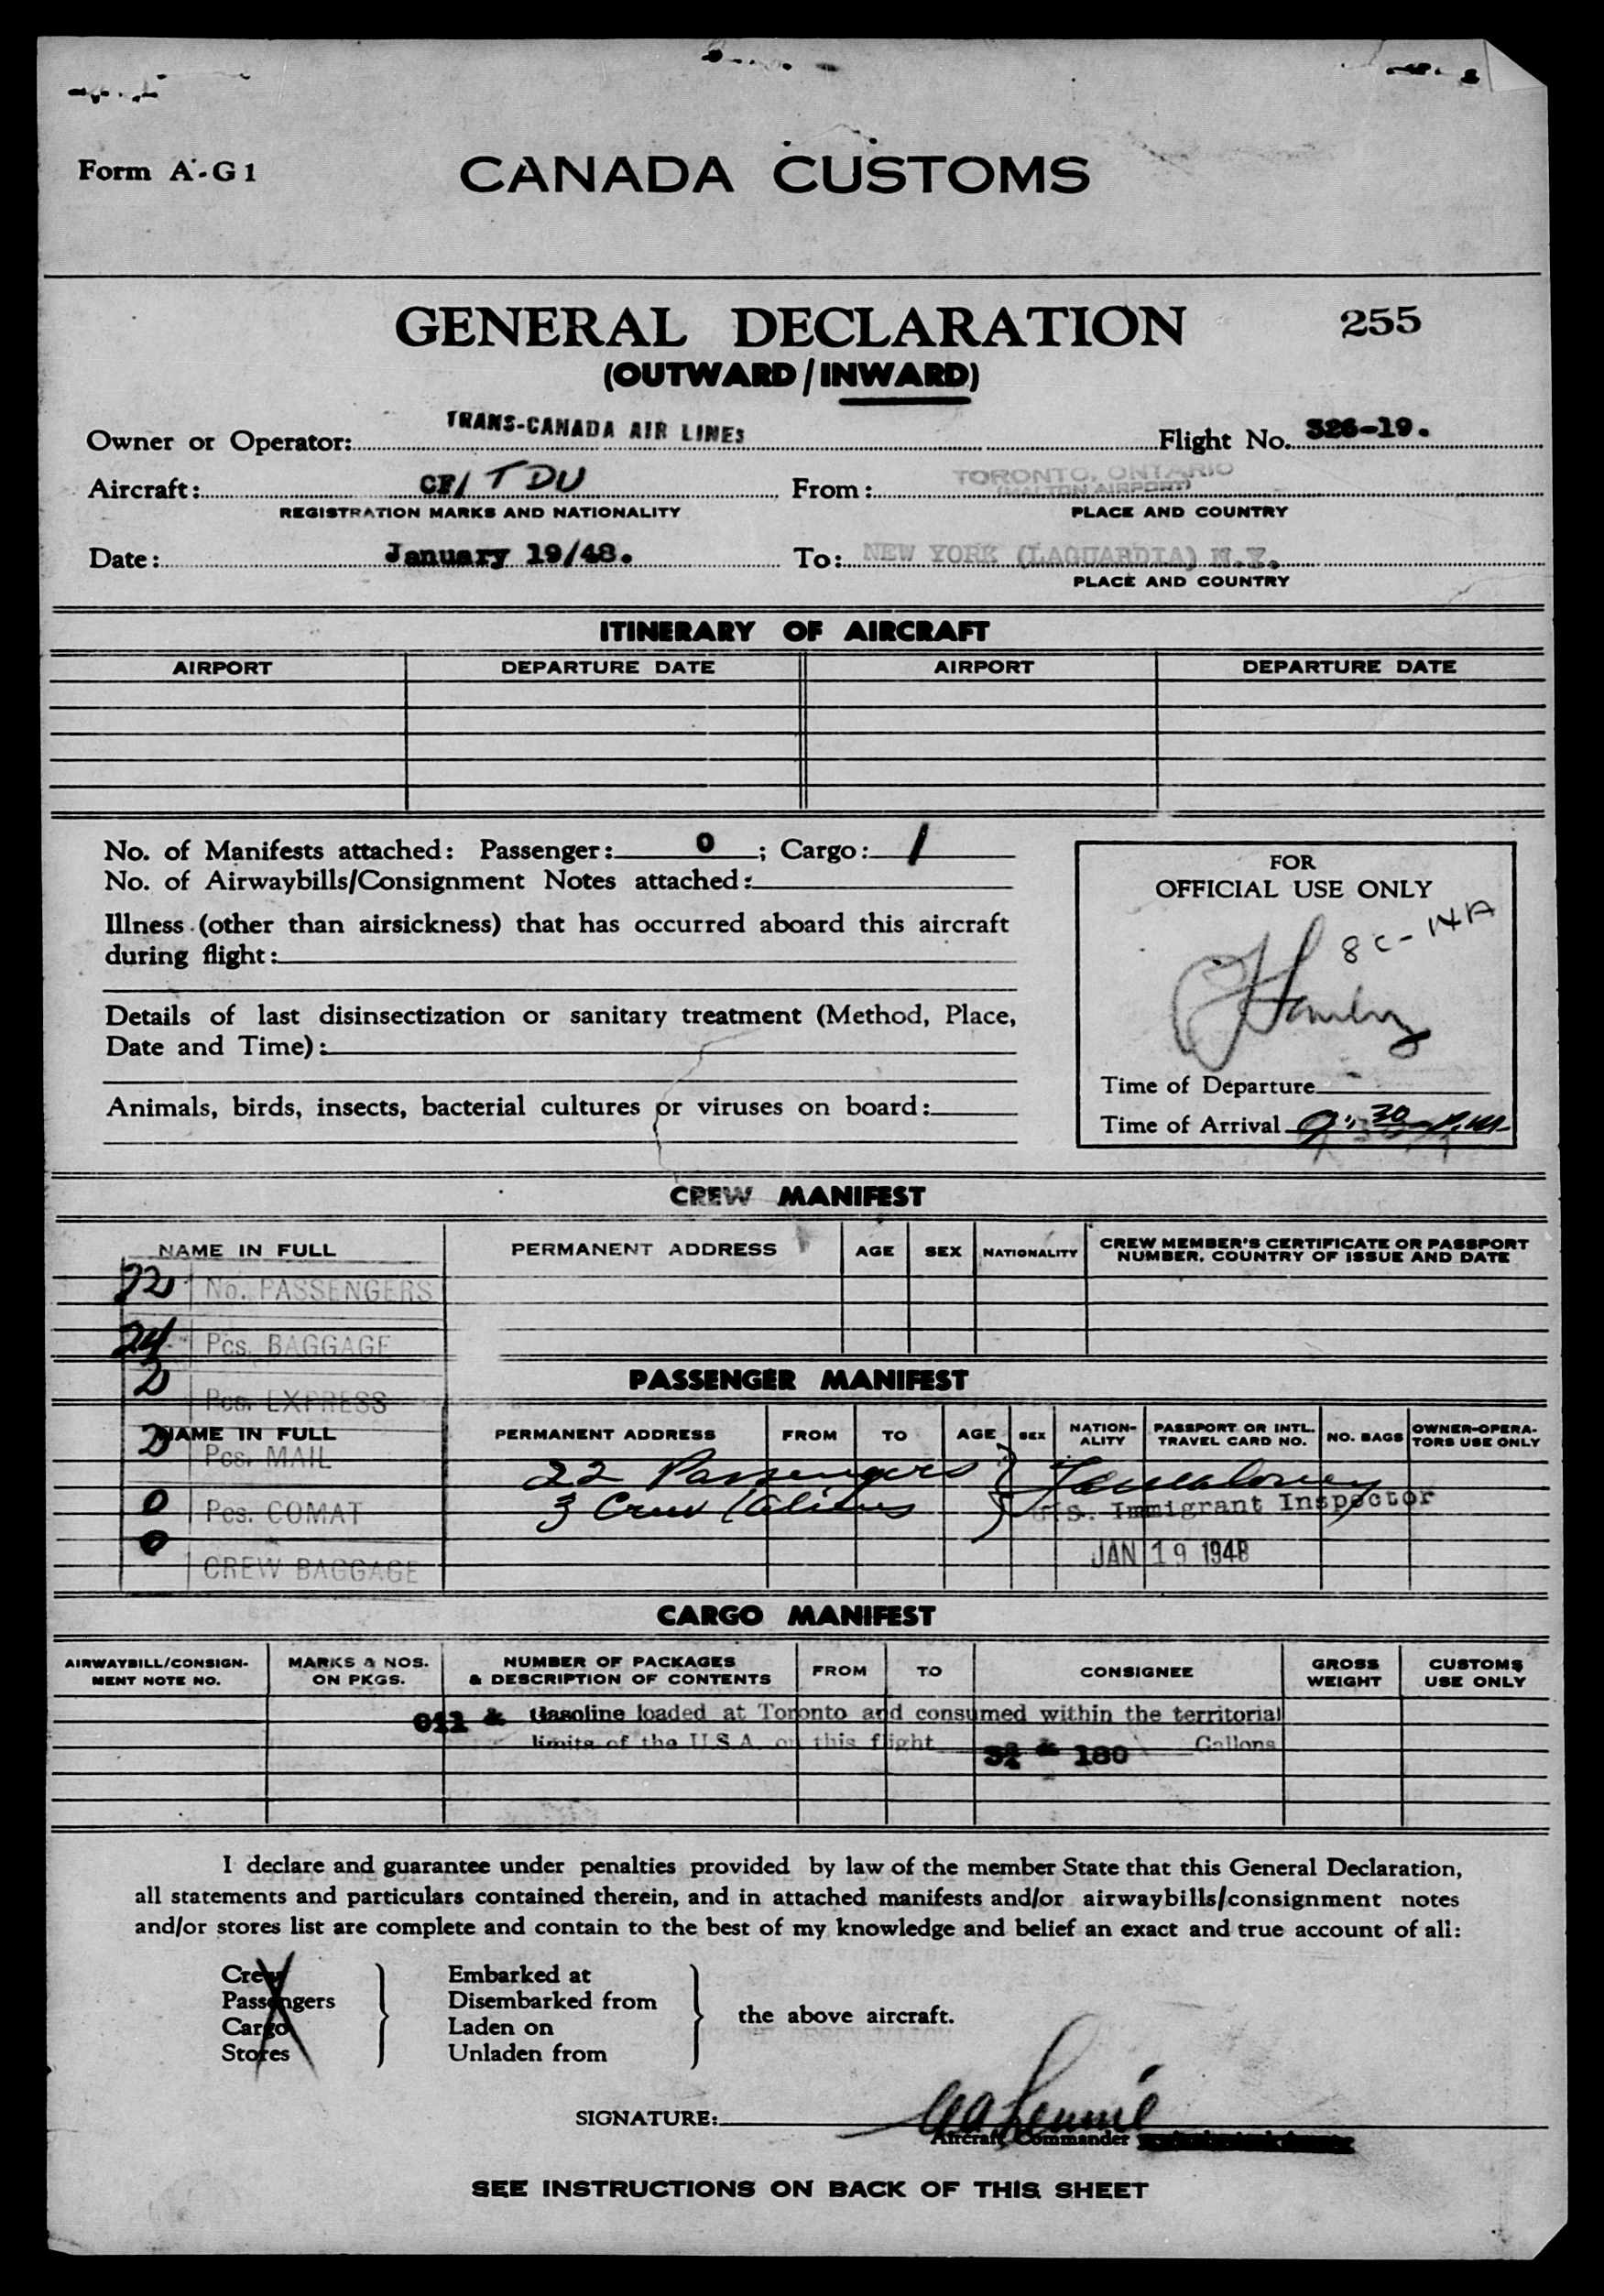 Form A-G1
CANADA CUSTOMS
GENERAL DECLARATION 255
(OUTWARD/INWARD)
Owner or Operator: TRANS-CANADA AIR LINES Flight No. 326-19.
Aircraft: CF/ TDU From: TORONTO, ONTARIO
(MALTON AIRPORT)
REGISTRATION MARKS AND NATIONALITY PLACE AND COUNTRY
Date: January 19/48. To: NEW YORK (LAGUARDIA) N.Y.
PLACE AND COUNTRY
ITINERARY OF AIRCRAFT
AIRPORT DEPARTURE DATE AIRPORT DEPARTURE DATE
No. of Manifests attached: Passenger: 0 ; Cargo: 1
No. of Airwaybills/Consignment Notes attached:
Illness (other than airsickness) that has occurred aboard this aircraft
during flight:
Details of last disinsectization or sanitary treatment (Method, Place,
Date and Time):
Animals, birds, insects, bacterial cultures or viruses on board:
FOR
OFFICIAL USE ONLY
8C-14A
Time of Departure
Time of Arrival 9:30 P.M.
CREW MANIFEST
NAME IN FULL PERMANENT ADDRESS AGE SEX NATIONALITY CREW MEMBER'S CERTIFICATE OR PASSPORT
NUMBER, COUNTRY OF ISSUE AND DATE
22 No. PASSENGERS
24 Pcs. BAGGAGE
2 Pcs. EXPRESS
PASSENGER MANIFEST
NAME IN FULL PERMANENT ADDRESS FROM TO AGE SEX NATION-
ALITY PASSPORT OR INTL.
TRAVEL CARD NO. NO. BAGS OWNER-OPERA-
TORS USE ONLY
2 Pcs. MAIL
22 Passengers
3 Crew
U.S. Immigrant Inspector
0 Pcs. COMAT
JAN 19 1948
0 CREW BAGGAGE
CARGO MANIFEST
AIRWAYBILL/CONSIGN-
MENT NOTE NO. MARKS & NOS.
ON PKGS. NUMBER OF PACKAGES
& DESCRIPTION OF CONTENTS FROM TO CONSIGNEE GROSS
WEIGHT CUSTOMS
USE ONLY
& Gasoline loaded at Toronto and consumed within the territorial
limits of the U.S.A. on this flight & 180 Gallons
I declare and guarantee under penalties provided by law of the member State that this General Declaration,
all statements and particulars contained therein, and in attached manifests and/or airwaybills/consignment notes
and/or stores list are complete and contain to the best of my knowledge and belief an exact and true account of all:
Crew Embarked at
Passengers Disembarked from
Cargo Laden on
Stores Unladen from
the above aircraft.
SIGNATURE:
Aircraft Commander
SEE INSTRUCTIONS ON BACK OF THIS SHEET